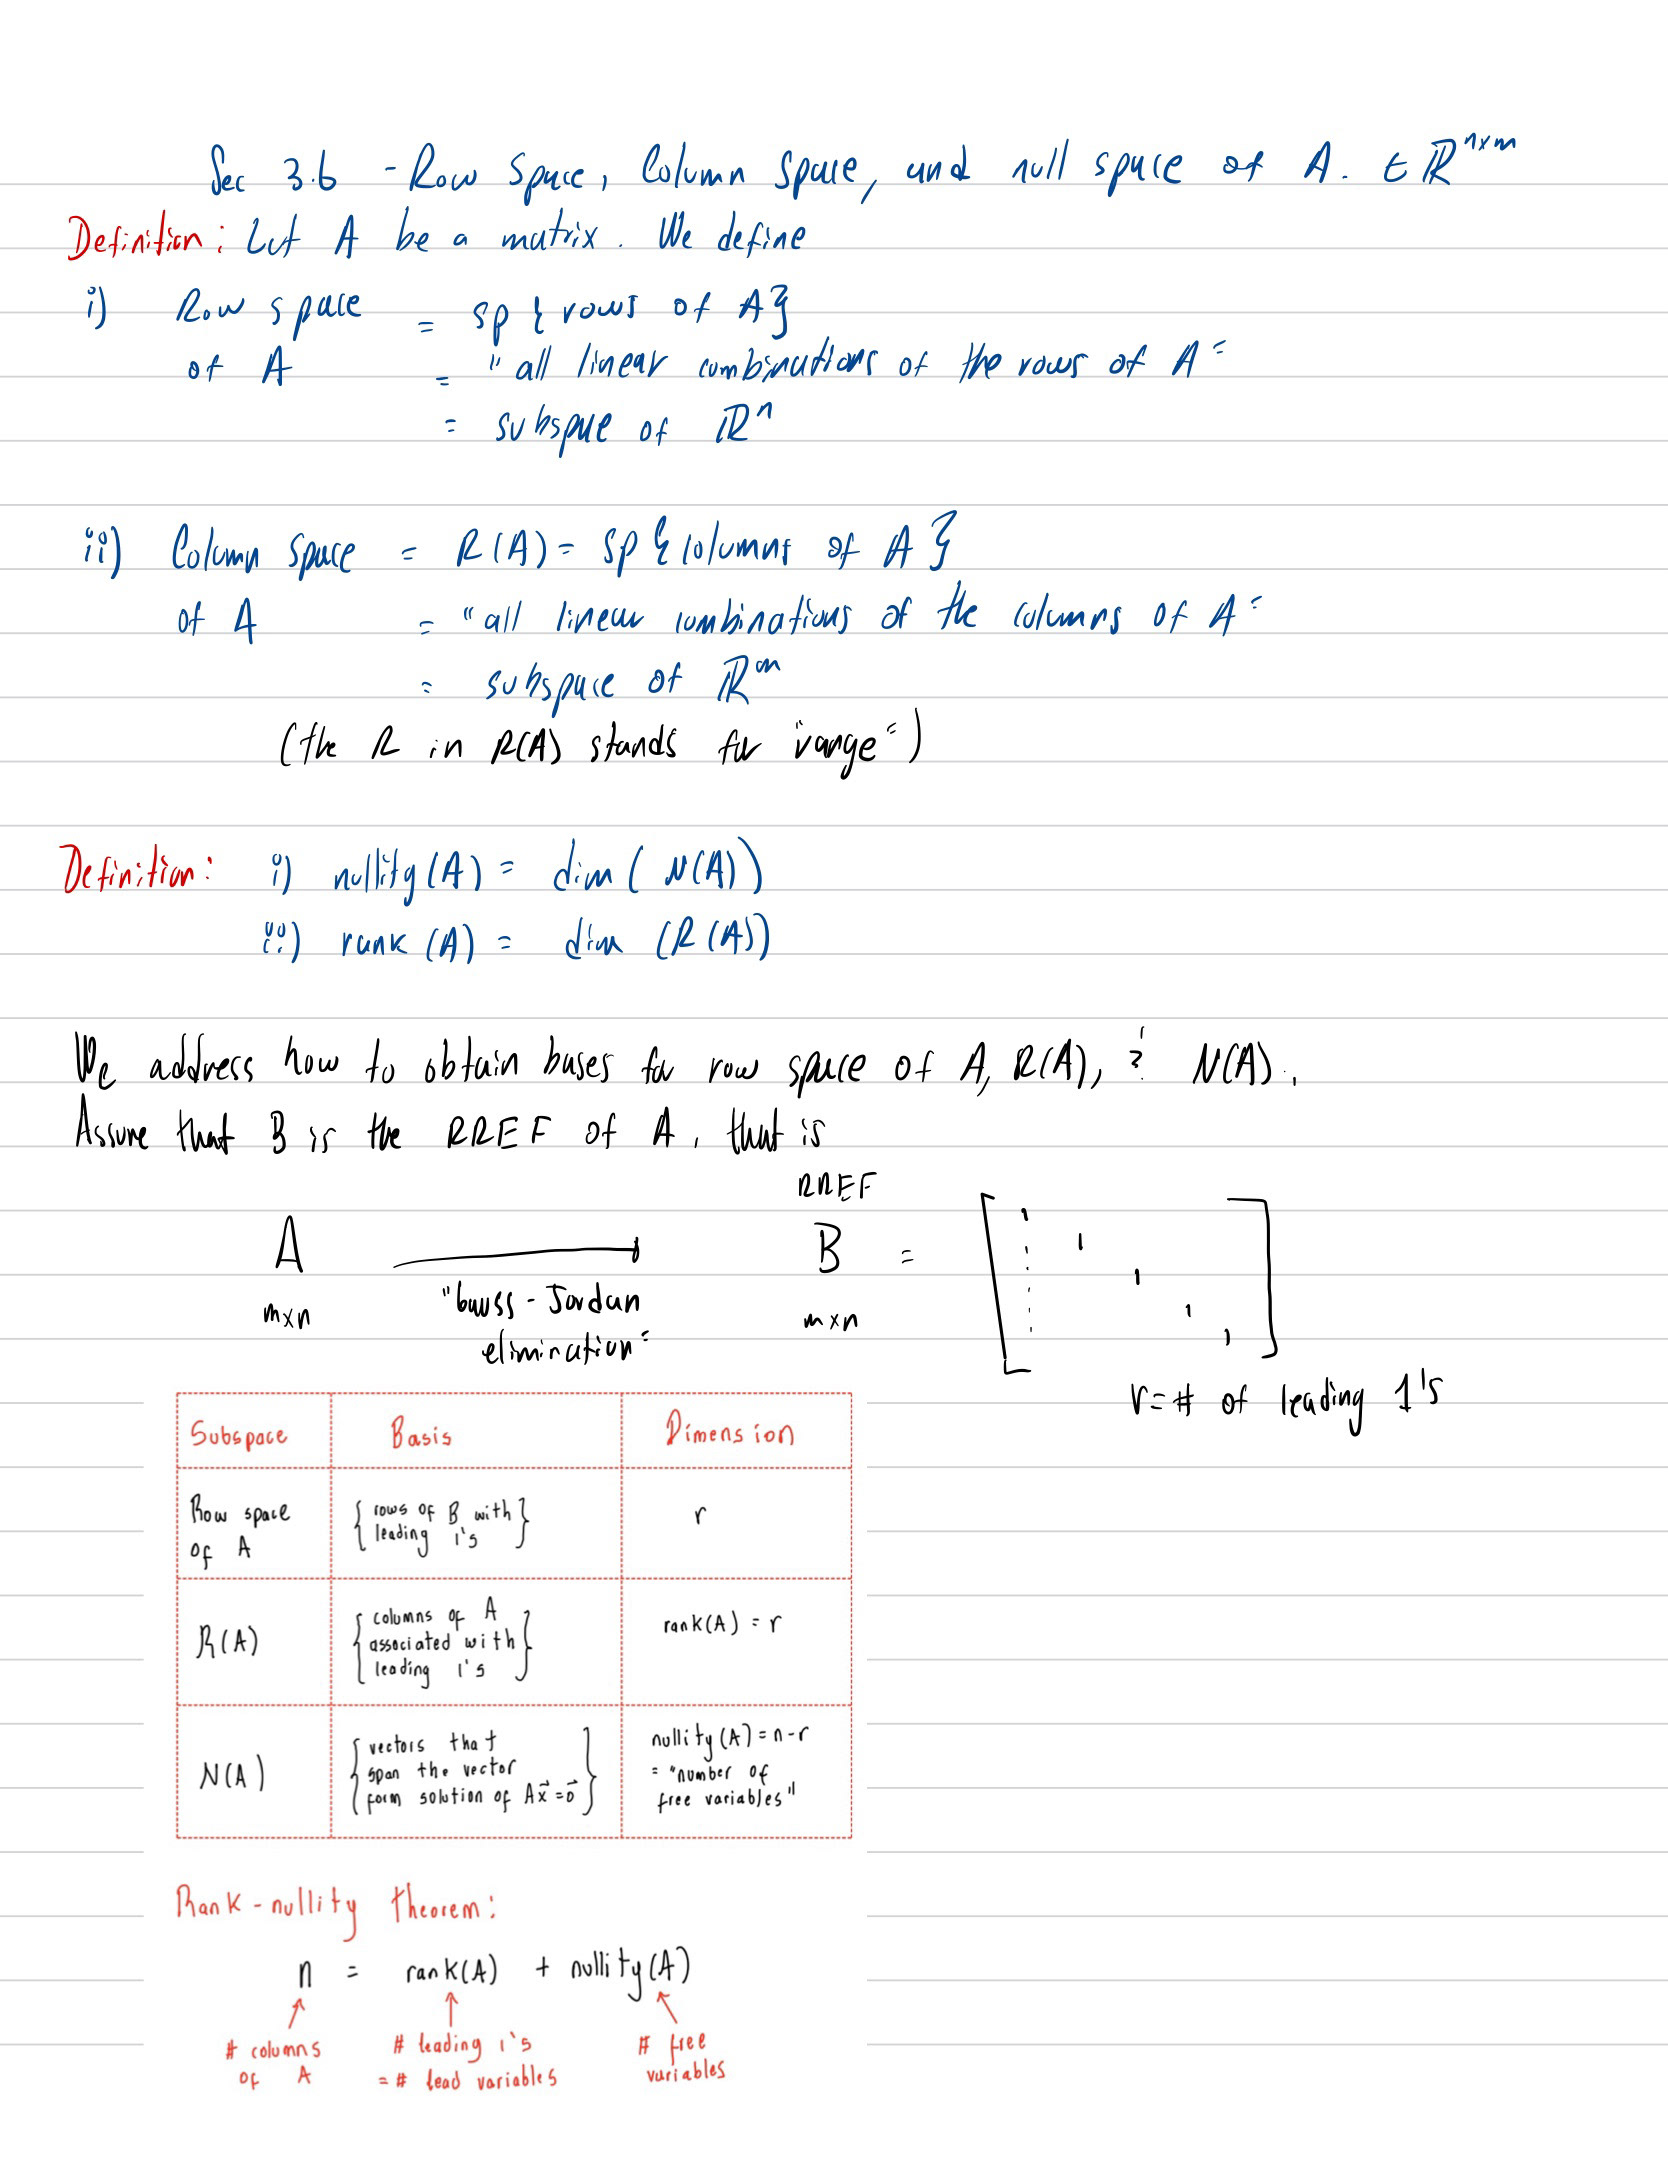 Sec 3.6 - Row space, Column space, and null space of A. ∈ ℝⁿˣᵐ
Definition: Let A be a matrix. We define
i) Row space = sp { rows of A }
of A = "all linear combinations of the rows of A"
= subspace of ℝⁿ
ii) Column space = R(A) = sp { columns of A }
of A = "all linear combinations of the columns of A"
= subspace of ℝᵐ
(the R in R(A) stands for "range")
Definition: i) nullity (A) = dim ( N(A))
ii) rank (A) = dim (R(A))
We address how to obtain bases for row space of A, R(A), & N(A).
Assume that B is the RREF of A, that is
RREF
A → B = [ 1 1 1 1 1 ]
m×n "Gauss-Jordan m×n
elimination"
r = # of leading 1's
Subspace Basis Dimension
Row space { rows of B with } r
of A leading 1's
R(A) { columns of A rank(A) = r
associated with
leading 1's }
N(A) { vectors that nullity (A) = n-r
span the vector = "number of
form solution of Ax⃗ = 0⃗ } free variables"
Rank-nullity theorem:
n = rank(A) + nullity (A)
# columns # leading 1's # free
of A = # lead variables variables